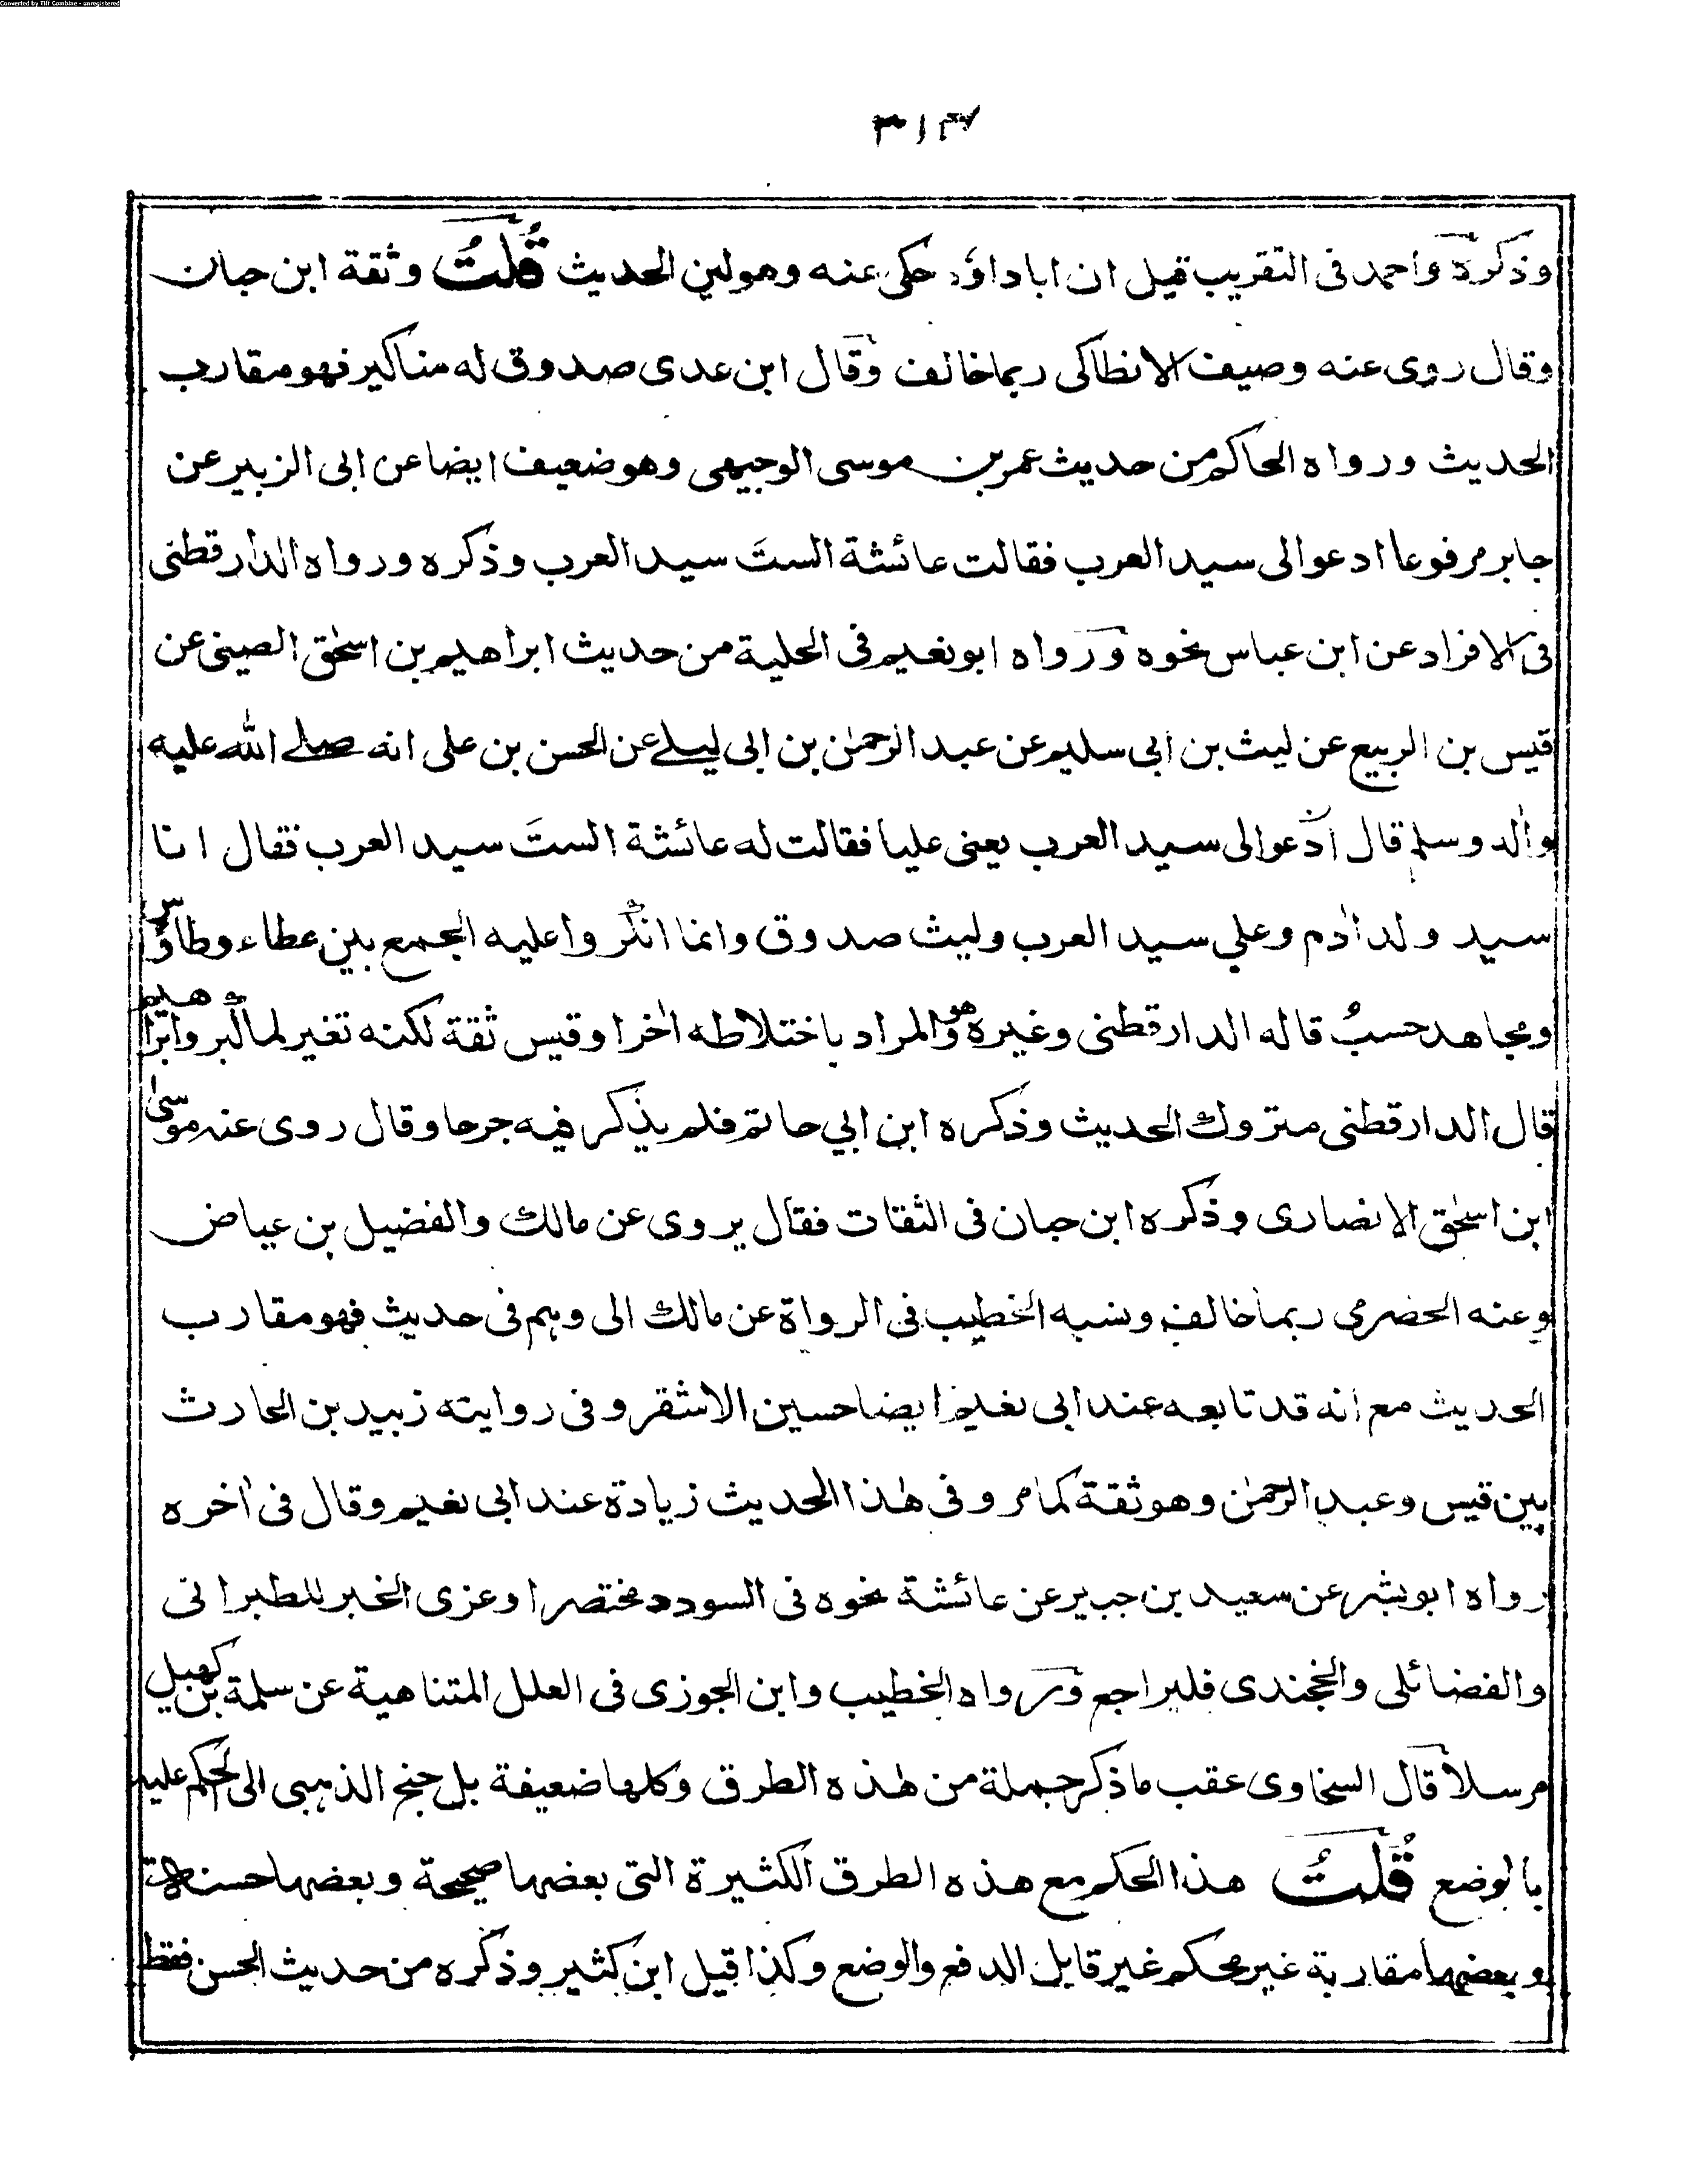 Converted by Tiff Combine - unregistered
٣١٣
وذكره واحمد فى التقريب قيل ان اباداؤد حكى عنه وهو لين الحديث قُلْتُ وثقة ابن حبان
وقال روى عنه وصيف الانطاكى ربما خالف وقال ابن عدى صدوق له مناكير فهو مقارب
الحديث ورواه الحاكم من حديث عمر بن موسى الوجيهى وهو ضعيف ايضا عن ابى الزبير عن
جابر مرفوعا ادعوا لى سيد العرب فقالت عائشة الستَ سيد العرب وذكره ورواه الدارقطنى
فى الافراد عن ابن عباس نحوه ورواه ابو نعيم فى الحلية من حديث ابراهيم بن اسحٰق الصينى عن
قيس بن الربيع عن ليث بن ابى سليم عن عبد الرحمٰن بن ابى ليلے عن الحسن بن على انه صلے الله عليه
واٰله وسلم قال ادعوا لى سيد العرب يعنى عليا فقالت له عائشة الستَ سيد العرب فقال انا
سيد ولد اٰدم وعلي سيد العرب وليث صدوق وانما انكروا عليه الجمع بين عطاء وطاؤس
ومجاهد حسبُ قاله الدارقطنى وغيره وهو المراد باختلاطه اٰخرا وقيس ثقة لكنه تغير لما كبر وابراهيم
قال الدارقطنى متروك الحديث وذكره ابن ابي حاتم فلم يذكر فيه جرحا وقال روى عنه موسىٰ
ابن اسحٰق الانصارى وذكره ابن حبان فى الثقات فقال يروى عن مالك والفضيل بن عياض
وعنه الحضرمى ربما خالف ونسبه الخطيب فى الرواة عن مالك الى وهم فى حديث فهو مقارب
الحديث مع انه قد تابعه عند ابى نعيم ايضا حسين الاشقر وفى روايته زبيد بن الحارث
بين قيس وعبد الرحمٰن وهو ثقة كما مر وفى هٰذا الحديث زيادة عند ابى نعيم وقال فى اٰخره
رواه ابو بشر عن سعيد بن جبير عن عائشة نحوه فى السودد مختصرا وعزى الخبر للطبرانى
والفضائلى والخجندى فليراجع ورواه الخطيب وابن الجوزى فى العلل المتناهية عن سلمة بن كهيل
مرسلا قال السخاوى عقب ما ذكر جملة من هٰذه الطرق وكلها ضعيفة بل جنح الذهبى الى الحكم عليه
بالوضع قُلْتُ هذا الحكم مع هذه الطرق الكثيرة التى بعضها صحيحة وبعضها حسنة
وبعضها مقاربة غير محكم غير قابل الدفع والوضع وكذا قيل ابن كثير وذكره من حديث الحسن فقط